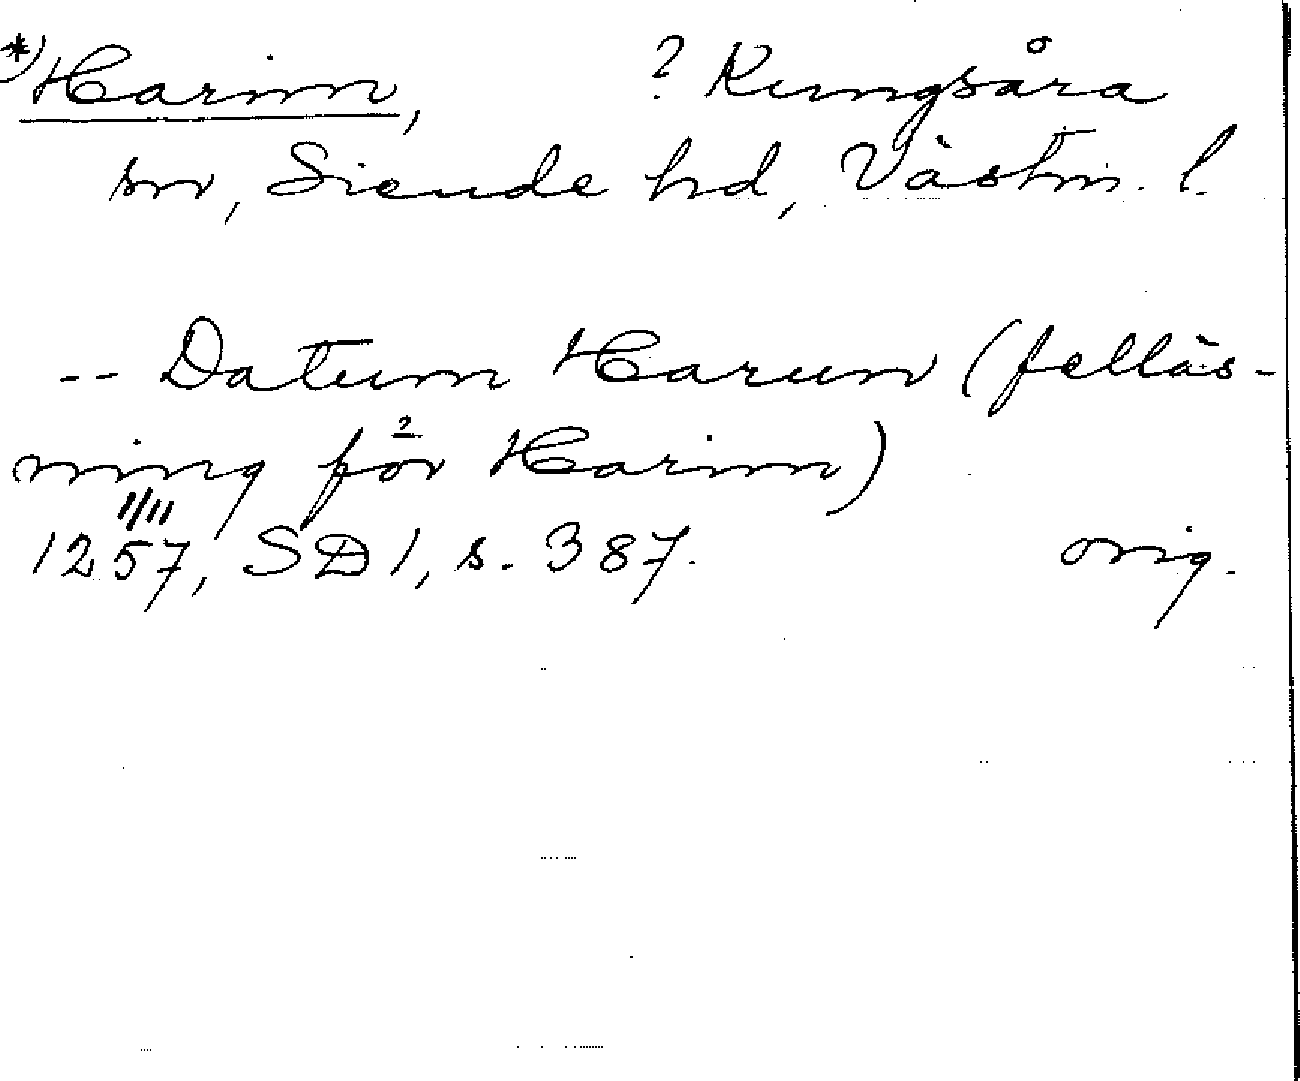 *) Harim, ? Kungsåra
sn, Siende hd, Västm. l.
-- Datum Harum (felläs-
ning för ? Harim)
1/11
1257, SD 1, s. 387. orig.